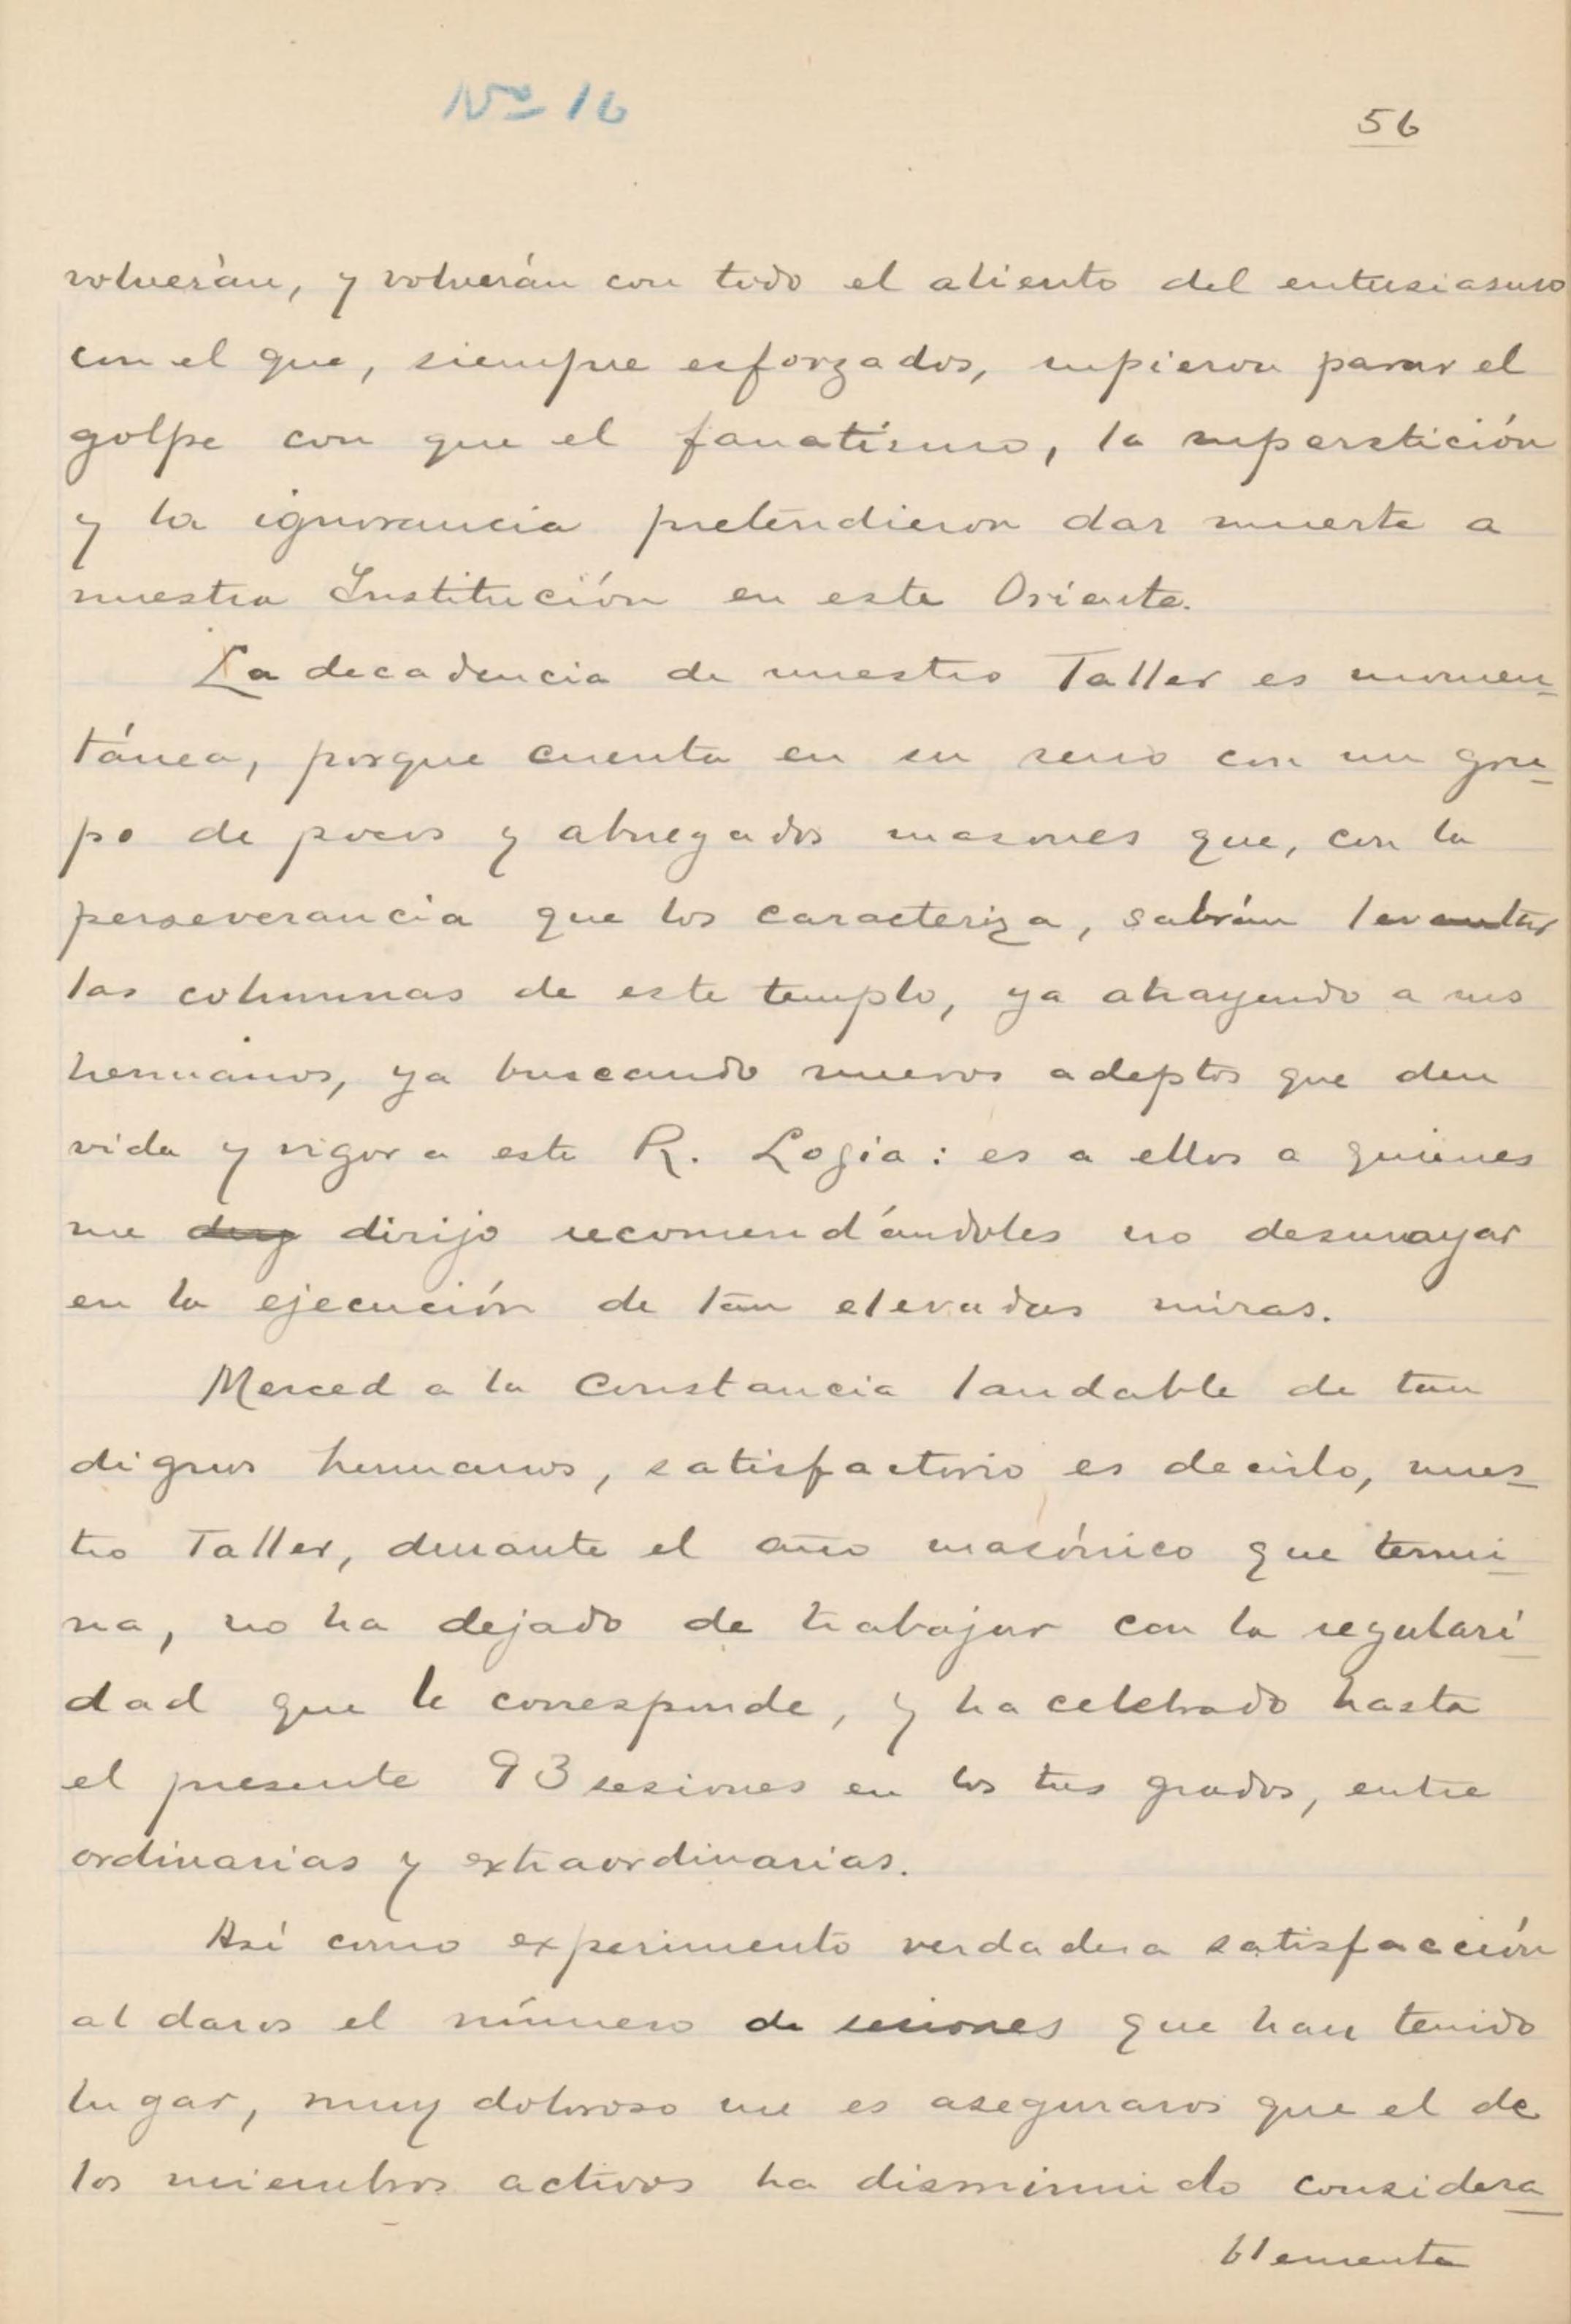 Nº 16
56
volverán, y volverán con todo el aliento del entusiasmo
con el que, siempre esforzados, supieron parar el
golpe con que el fanatismo, la superstición
y la ignorancia pretendieron dar muerte a
nuestra Institución en este Oriente.
La decadencia de nuestro Taller es momen-
tánea, porque cuenta en su seno con un gru-
po de pocos y abnegados masones que, con la
perseverancia que los caracteriza, sabrán levantar
las columnas de este templo, ya atrayendo a sus
hermanos, ya buscando nuevos adeptos que den
vida y vigor a este R. Logia: es a ellos a quienes
me dirijo recomendándoles no desmayar
en la ejecución de tan elevadas miras.
Merced a la constancia laudable de tan
dignos hermanos, satisfactorio es decirlo, nues-
tro Taller, durante el año masónico que termi-
na, no ha dejado de trabajar con la regulari-
dad que le corresponde, y ha celebrado hasta
el presente 93 sesiones en los tres grados, entre
ordinarias y extraordinarias.
Así como experimento verdadera satisfacción
al daros el número de sesiones que han tenido
lugar, muy doloroso me es aseguraros que el de
los miembros activos ha disminuido considera-
blemente